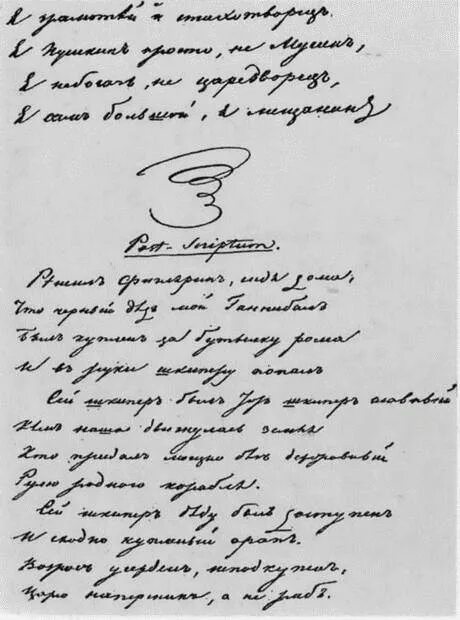 Я грамотѣй и стихотворецъ.
Я Пушкинъ просто, не Мусинъ,
Я не богачъ, не царедворецъ,
Я самъ большой, я мещанинъ
Post-Scriptum.
Рѣшилъ Фигляринъ, сидя дома,
Что черный дѣдъ мой Ганнибалъ
Былъ купленъ за бутылку рома
И въ руки шкиперу попалъ
Сей шкиперъ былъ тотъ шкиперъ славный
Кѣмъ наша двигнулась земля
Кто придалъ мощно бѣгъ державный
Рулю родного корабля.
Сей шкиперъ дѣду былъ доступенъ
И сходно купленный арапъ.
Возросъ усерденъ, неподкупенъ,
Царю наперсникъ, а не рабъ.